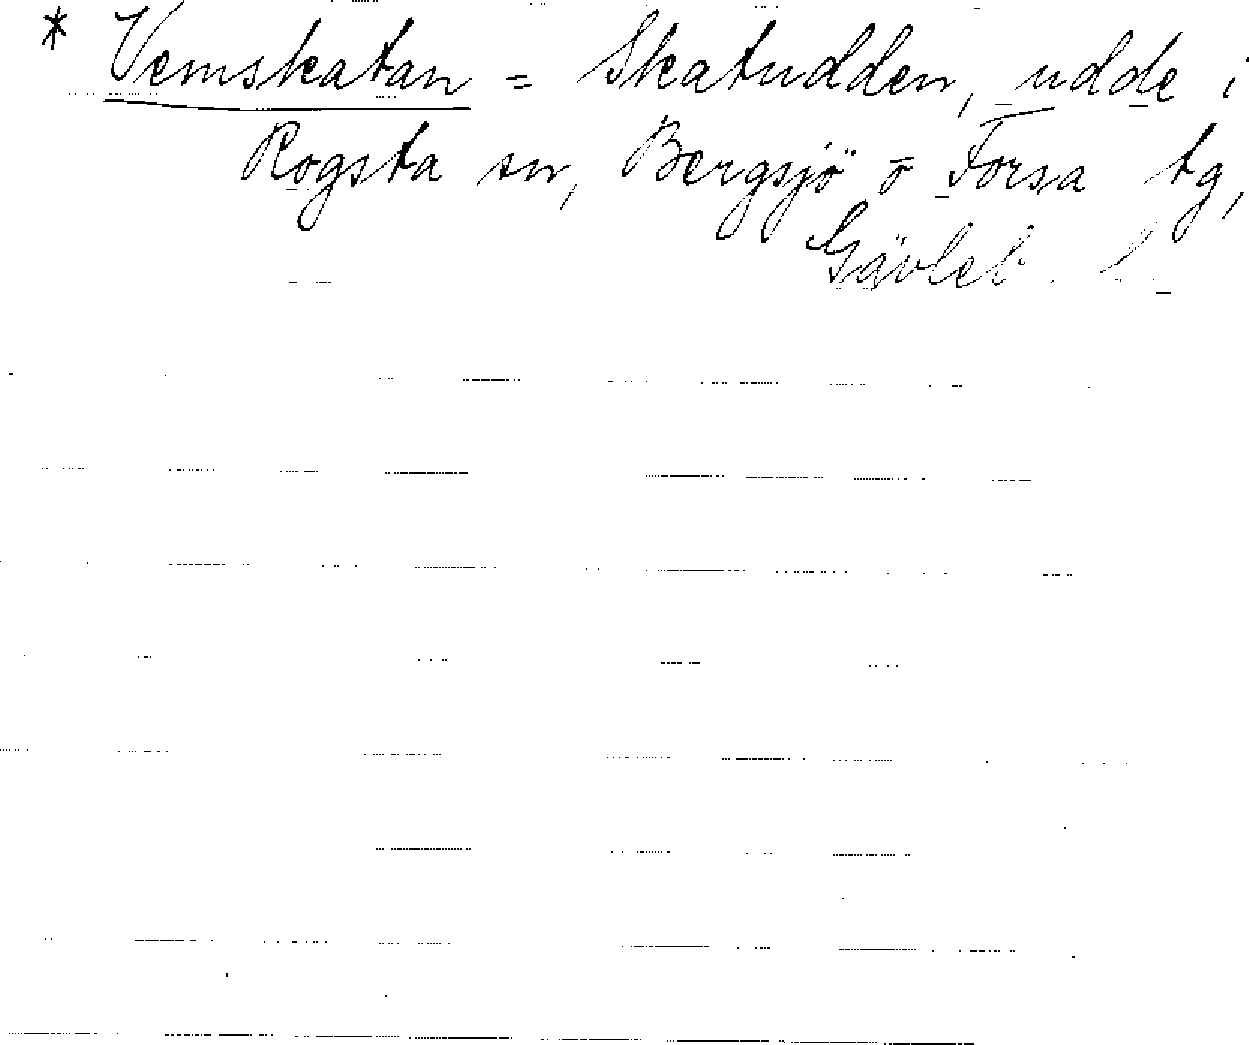 * Vemskatan = Skatudden, udde i
Rogsta sn, Bergsjö o Forsa tg,
Gävleb. l.